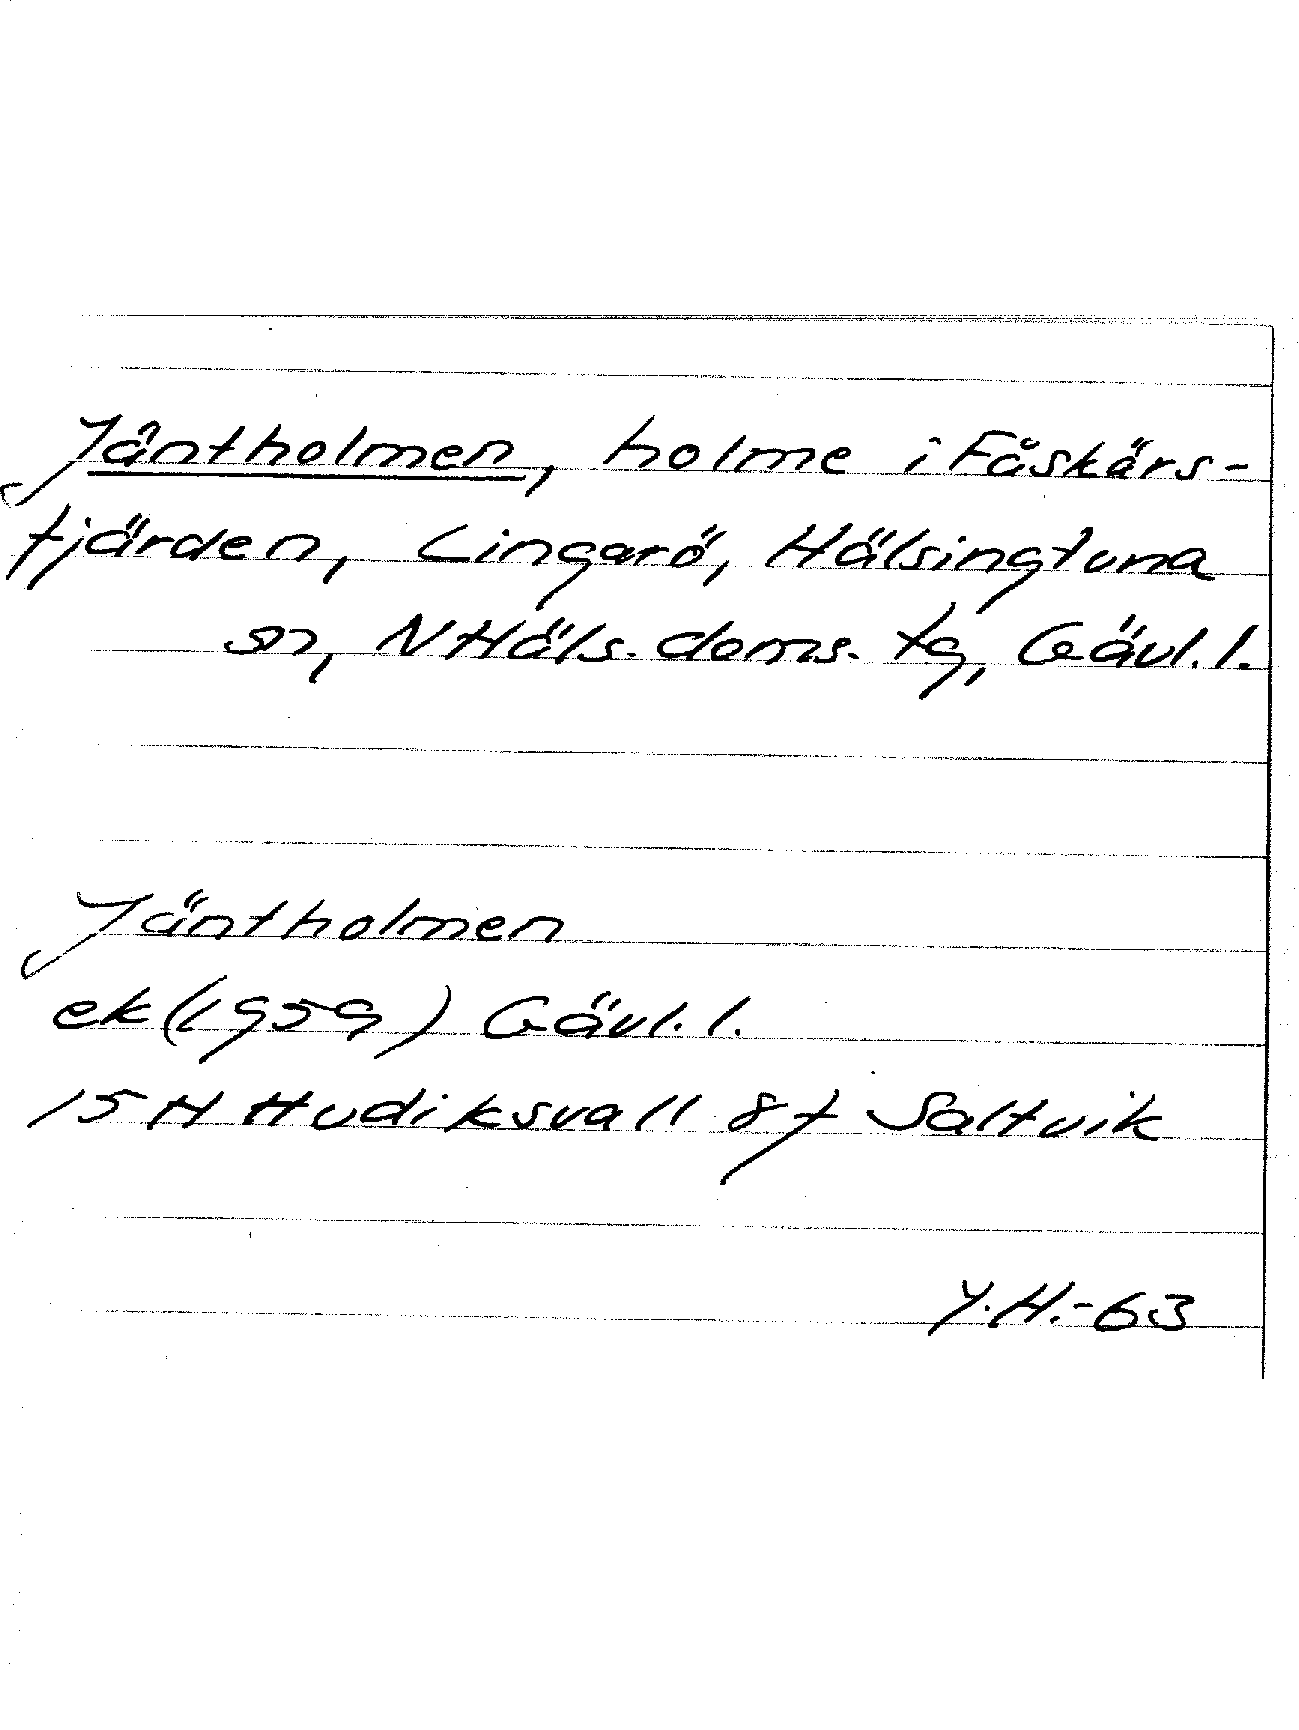 Jäntholmen, holme i Fåskärs-
fjärden, Lingarö, Hälsingtuna
sn, N Häls. doms. tg, Gävl. l.
Jäntholmen
ek (1959) Gävl. l.
15 H Hudiksvall 8f Saltvik
Y.H.-63